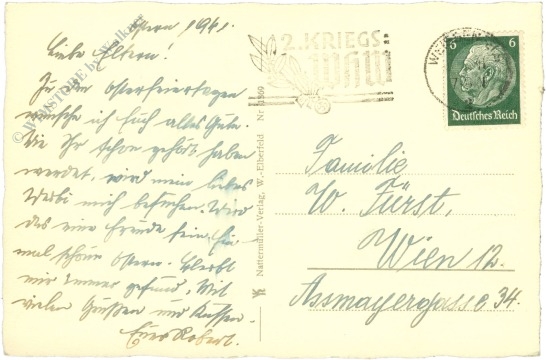 Ostern 1941.
Liebe Eltern!
Zu den Osterfeiertagen
wünsche ich Euch alles Gute.
Wie Ihr schon gehört haben
werdet, wird mein liebes
Weibi mich besuchen. Wird
das eine Freude sein, ein-
mal schöne Ostern. Bleibt
mir immer gesund. Mit
vielen Grüßen und Küssen
Euer Robert.
© WEBSTORE by Walküre
Nattermüller-Verlag, W.-Elberfeld Nr. 1369
2. KRIEGS-
WHW
6 6
Deutsches Reich
Familie
W. Fürst,
Wien 12.
Assmayergasse 34.